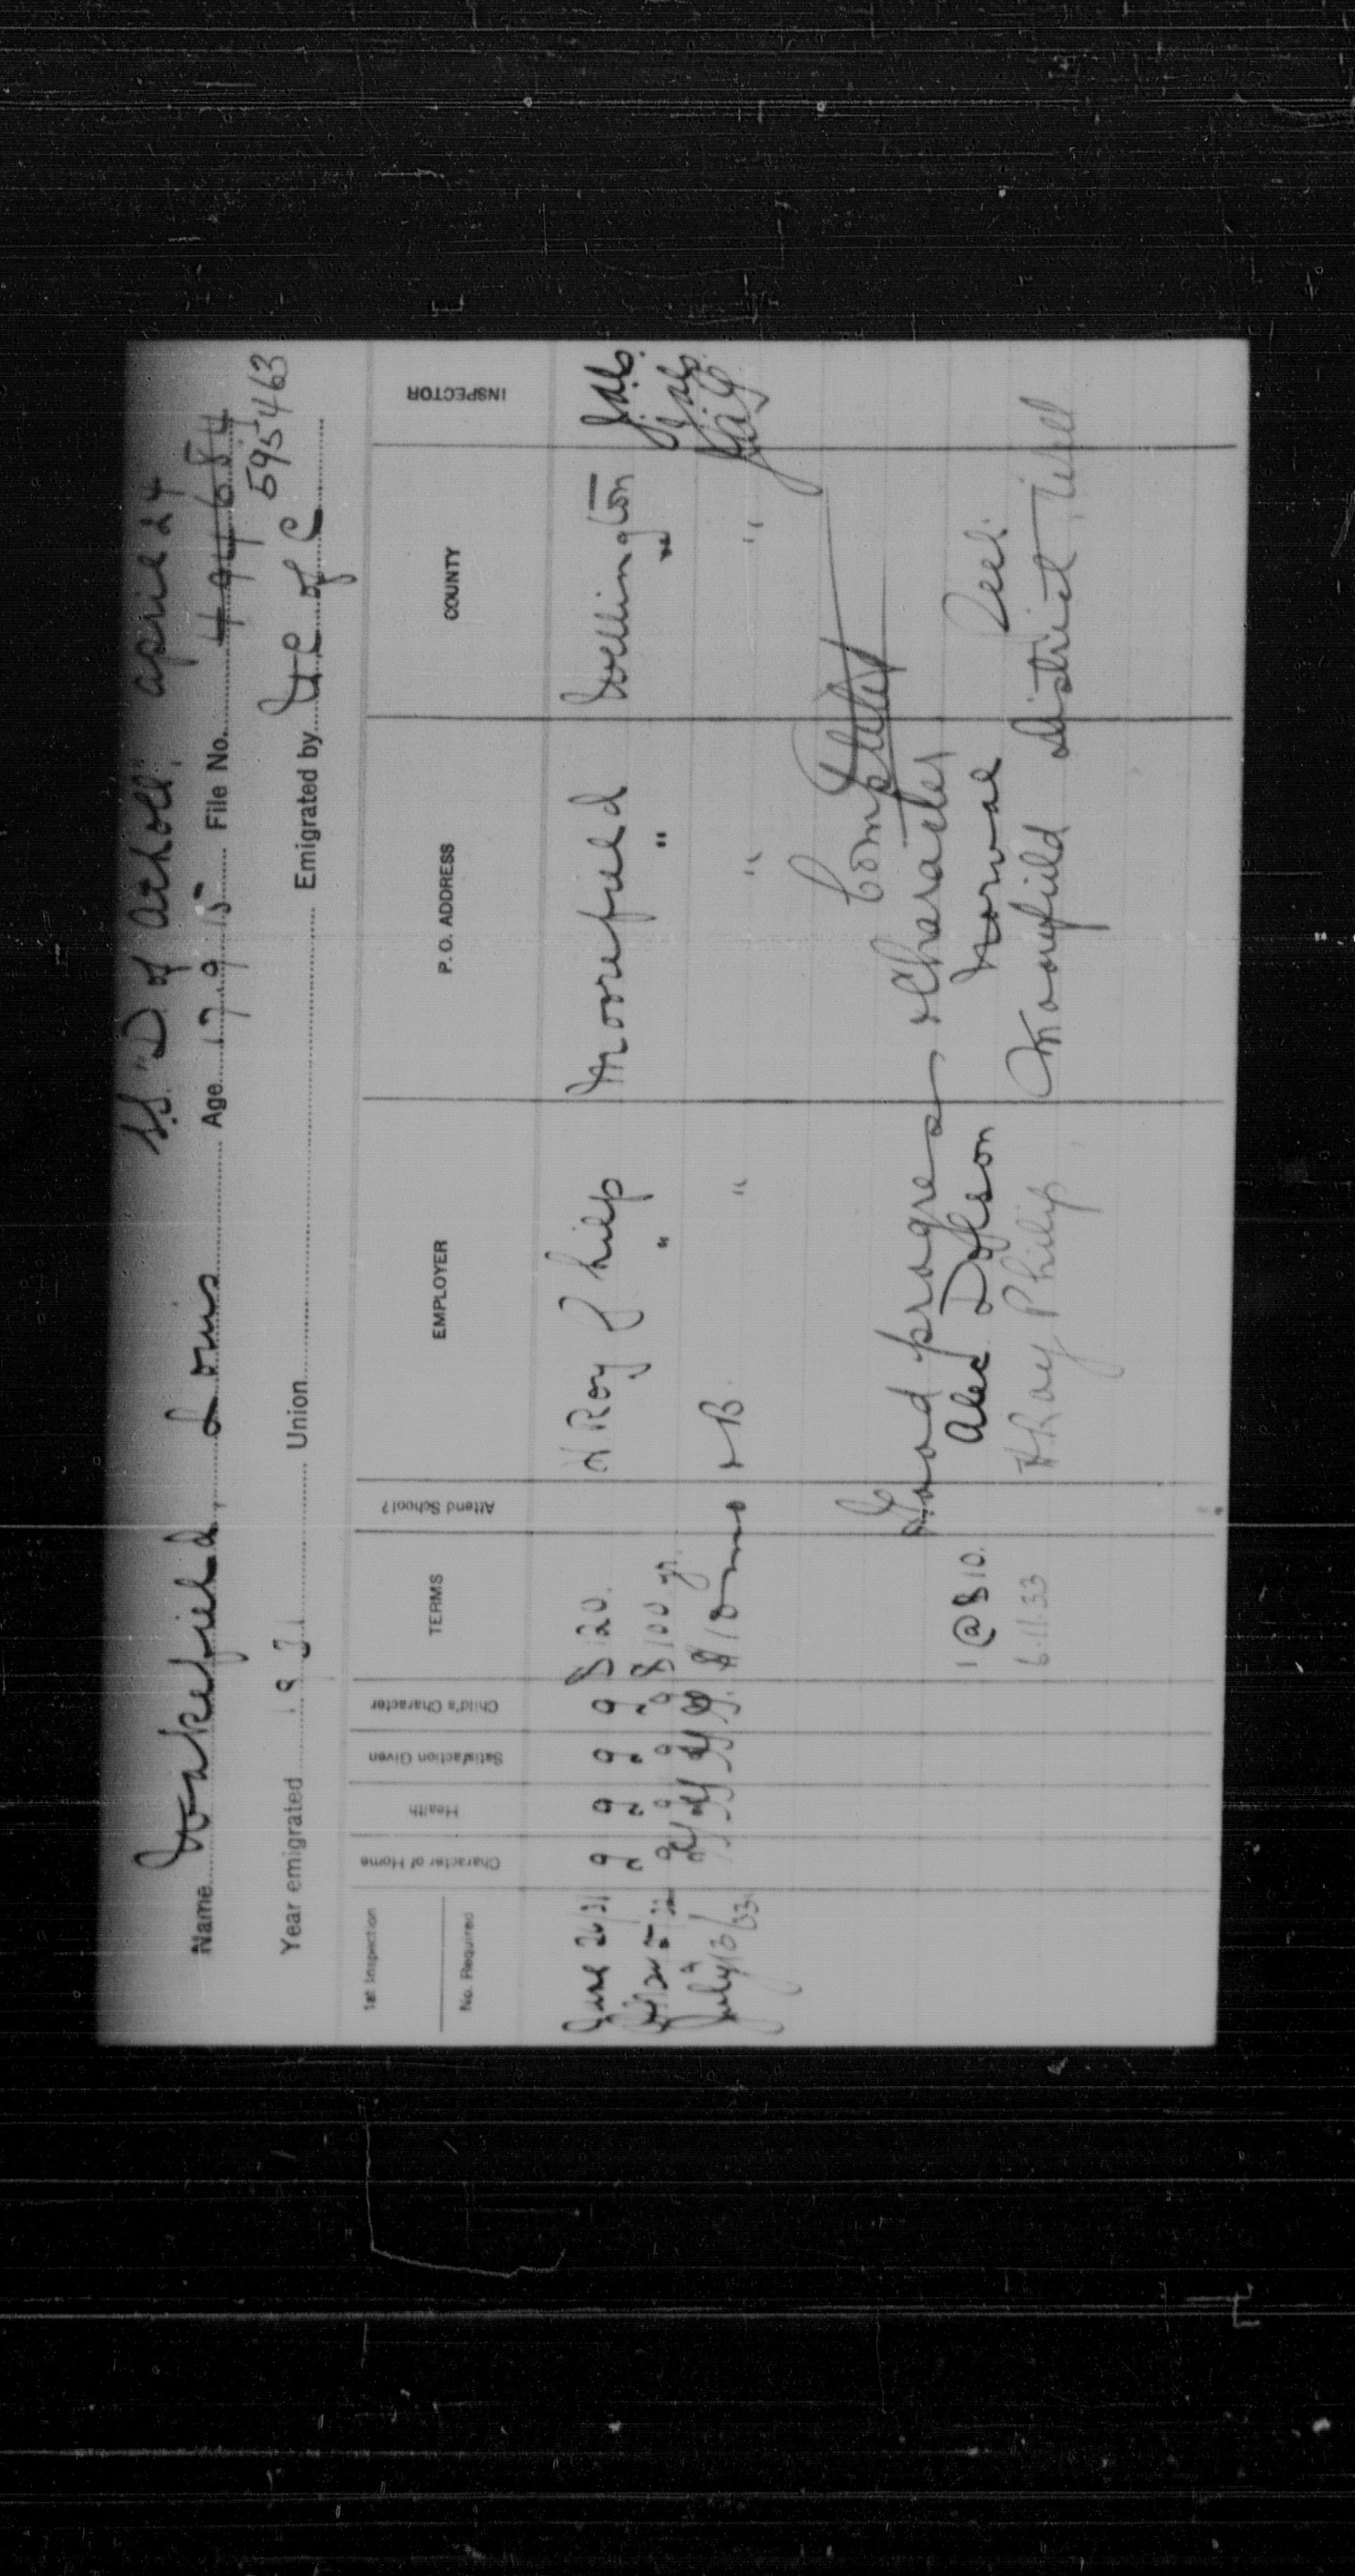 S.S. "D of Atholl", April 24
Name Wakefield, Louis Age 17 9 15 File No. 494684
595463
Year emigrated 1931 Union Emigrated by U C of C
1st Inspection No. Required Character of Home Health Satisfaction Given Child's Character TERMS Attend School? EMPLOYER P. O. ADDRESS COUNTY INSPECTOR
June 26/31 g g g g $120. H Roy Philp Moorefield Wellington
g g g g $100 yr. " " "
July 10/33 $10 mo + B " " "
Completed
Good progress & Character
1 @ $10. Alec Dobson Norval Peel
6-11-33 H Ray Philip, Moorefield district, Well